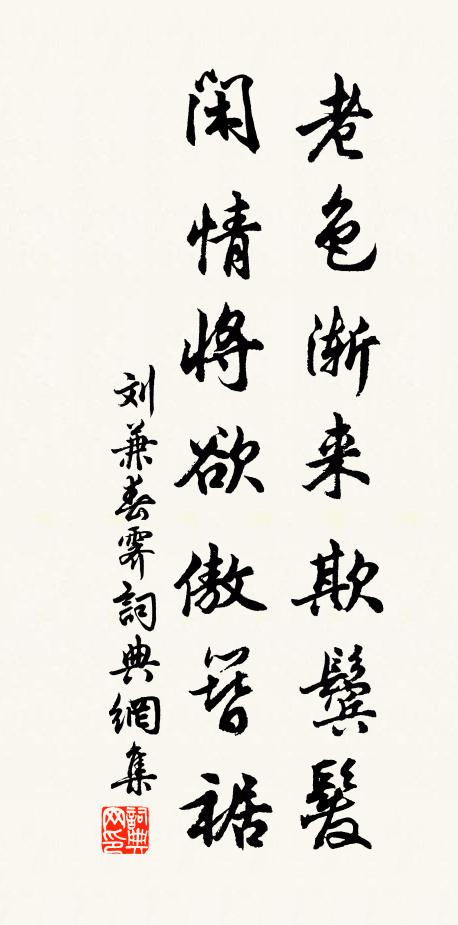 老色渐来欺鬓髮
闲情将欲傲簪裾
刘兼春霁詞典網集
詞典网印